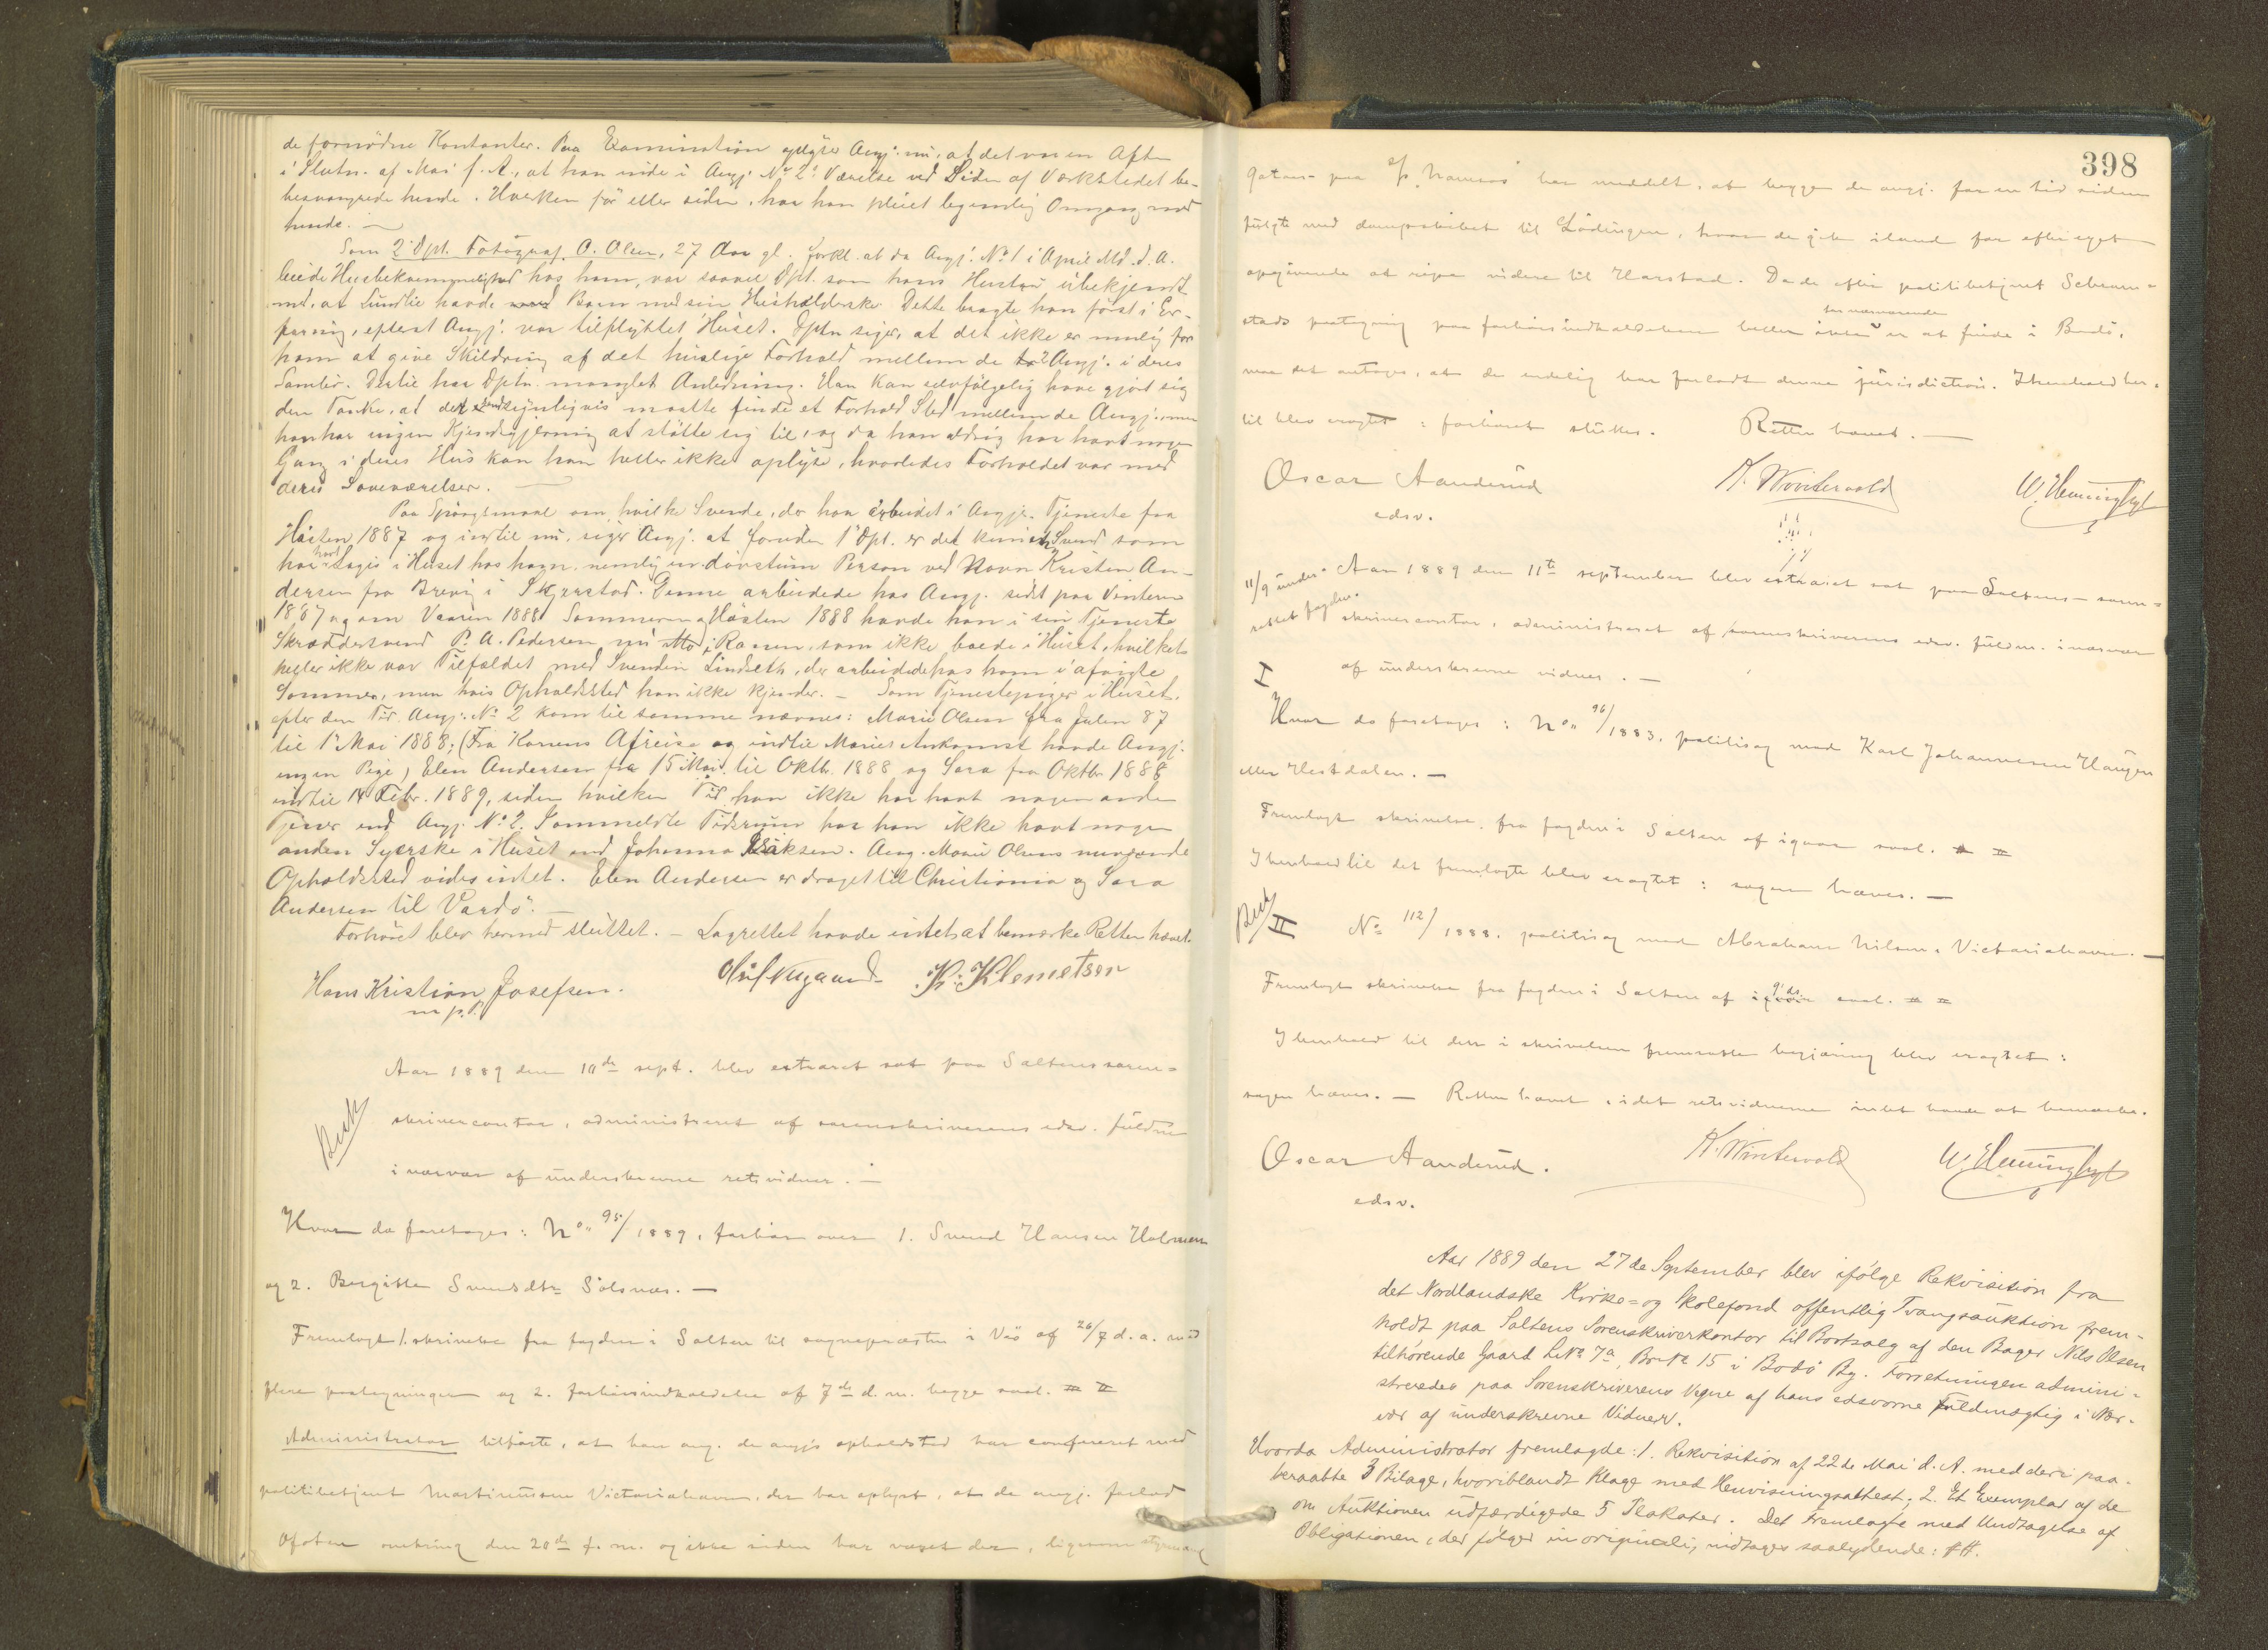 de fornödne Kontanter. Paa Examination oplyser Angj. nu, at det var en Aften
i Slutn. af Mai f. A., at han inde i Angj. No 2s Værelse ved Siden af Værkstedet be-
besvangrede hende. Hverken för eller siden, har han pleiet legemlig Omgang med
hende. —
Som 2 Dpt. Fotograf O. Olsen, 27 Aar gl. forkl. at da Angj. No 1 i April Md. d. A.
leiede Husbekvemmelighed hos ham, var saavel Dpt. som hans Hustru ubekjendt
med, at Lundlie havde Barn med sin Husholderske. Dette bragte han först i Er-
faring, efterat Angj. var tilflyttet Huset. Dptn siger, at det ikke er mulig for
ham at give Skildring af det huslige Forhold mellem de 2 Angj. i deres
Samliv. Dertil har Dptn. manglet Anledning. Han kan selvfölgelig have gjort sig
den Tanke, at det sandsynligvis maatte finde et Forhold Sted mellem de Angj. men
han har ingen Kjendsgjerning at stötte sig til, og da han aldrig har havt nogen
Gang i deres Hus kan han heller ikke oplyse, hvorledes Forholdet var med
deres Soveværelser. —
Paa Spörgsmaal om hvilke Svende, der har arbeidet i Angjs. Tjeneste fra
Hösten 1887 og indtil nu, siger Angj. at foruden 1 Dpt. er det kun en Svend som
har havt Logis i Huset hos ham, nemlig en dövstum Person ved Navn Kristen An-
dersen fra Breivig i Skjerstad. Denne arbeidede hos Angj. sidst paa Vinteren
1887 og om Vaaren 1888. Sommeren og Hösten 1888 havde han i sin Tjeneste
Skræddersvend P. A. Pedersen, nu Mo i Ranen, som ikke boede i Huset, hvilket
heller ikke var Tilfældet med Svenden Lindseth, der arbeidede hos ham i afvigte
Sommer, men hvis Opholdssted han ikke kjender. – Som Tjenestepiger i Huset,
efter den Tid Angj. No 2 kom til samme nævnes: Marie Olsen fra Julen 87
til 1 Mai 1888; (Fra Karens Afreise og indtil Maries Ankomst havde Angj.
ingen Pige) Elen Andersen fra 15 Mai til Oktb. 1888 og Sara fra Oktbr 1888
indtil 14 Febr. 1889, siden hvilken Tid han ikke har havt nogen anden
Tjener end Angj. No 2. Sammeldte Tidsrum har han ikke havt nogen
anden Syerske i Huset end Johanna Isaksen. Ang. Marie Olsens nuværende
Opholdssted vides intet. Elen Andersen er draget til Christiania og Sara
Andersen til Vardö. —
Forhöret blev hermed sluttet. – Lagrettet havde intet at bemærke Retten hævet.
Hans Kristian Josefsen.
m. p. P.
Olüf Nygaard K. Klemetsen
Aar 1889 den 10de sept. blev extraret sat paa Saltens soren-
Besk
skrivercontor, administreret af sorenskriverens edsv. fuldm.
i nærvær af underskrevne retsvidner. —
Hvor da foretages: No. 95/1889, forhör over 1. Svend Hansen Holmen
og 2. Bergitte Svendsdtr Solsnæs. —
Fremlagt 1. skrivelse fra fogden i Salten til sognepræsten i Vös af 26/7 d. a. med
flere paategninger og 2. forhörsindkaldelse af 7de d. m. begge saal. # #
Administrator tilförte, at han ang. de angj.s opholdsted har confereret med
politibetjent Martinussen Victoriahavn, der har oplyst, at de angj. forlod
Ofoten omkring den 20de f. m. og ikke siden har været der, ligesom styrmand
398
paa d/s Namsos har meddelt, at begge de angj. for en tid siden
fulgte med dampskibet til Lödingen, hvor de gik iland for efter eget
opgivende at reise videre til Harstad. Da de efter politibetjent
for nærværende
stads paategning paa forhörsindkaldelsen heller ikke er at finde i Bodö,
maa det antages, at de endelig har forladt denne jurisdiction. I henhold her-
til blev eragtet: forhöret sluttes. Retten hævet. —
Oscar Aanderud K. Winterwold W. Henningbygt
edsv.
11/9 under- Aar 1889 den 11te september blev extraret sat paa Saltens soren-
rettet fogden. skrivercontor, administreret af sorenskriverens edsv. fuldm. i nærvær
I af underskrevne vidner. —
Hvor da foretages: No. 96/1883, politisag mod Karl Johannesen Haugen
eller Hestdalen. —
Fremlagt skrivelse fra fogden i Salten af igaar saal. # #
I henhold til det fremlagte blev eragtet: sagen hæves. —
Besk/ II No 112/1888. politisag mod Abraham Nilsen, Victoriahavn. —
Fremlagt skrivelse fra fogden i Salten af 9'ds. saal. # #
I henhold til den i skrivelsen fremsatte begjæring blev eragtet:
sagen hæves. — Retten hævet, idet retsvidnerne intet havde at bemærke.
Oscar Aanderud. K. Winterwold W. Henningbygt
edsv.
Aar 1889 den 27de September blev ifölge Rekvisition fra
det Nordlandske Kirke= og Skolefond offentlig Tvangsauktion frem-
holdt paa Saltens Sorenskriverkontor til Bortsalg af den Bager Nils Olsen
tilhörende Gaard L.No 7a, Br.No 15 i Bodö By. Forretningen admini-
streredes paa Sorenskriverens Vegne af hans edsvorne Fuldmægtig i Nær-
vær af underskrevne Vidner.
Hvorda Administrator fremlagde: 1. Rekvisition af 22de Mai d. A. med deri paa-
beraabte 3 Bilage, hvoriblandt Klage med Henvisningsattest; 2. Et Exemplar af de
om Auktionen udfærdigede 5 Plakater. Det Fremlagte med Undtagelse af
Obligationen, der fölger in originali, indtages saalydende: ##.